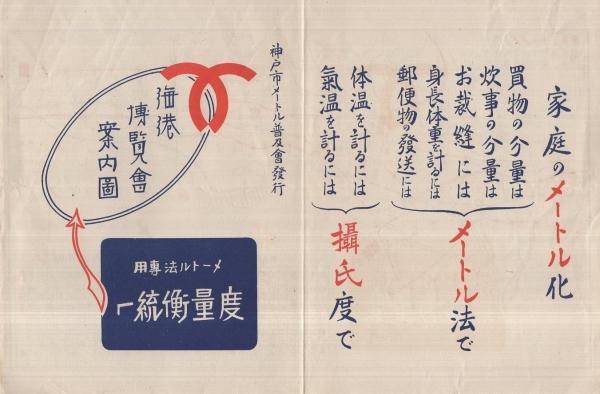 家庭のメートル化
買物の分量は
炊事の分量は
お裁縫には
身長体重を計るには
郵便物の發送には
メートル法で
体温を計るには
氣温を計るには
攝氏度で
神戸市メートル普及會發行
海港
博覧會
案内圖
メートル法專用
度量衡統一